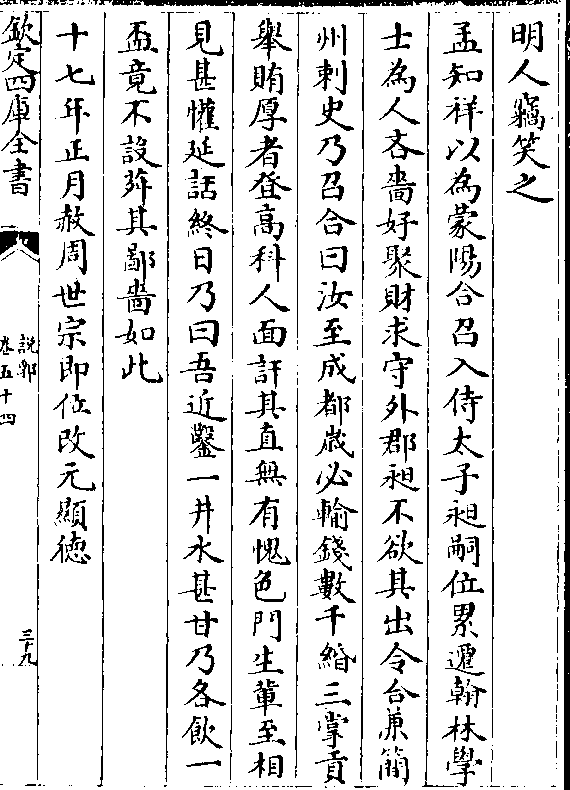 明人竊笑之
孟知祥以為蒙陽合召入侍太子昶嗣位累遷翰林學
士為人吝嗇好聚財求守外郡昶不欲其出令合兼簡
州刺史乃召合曰汝至成都歲必輸錢數千緡三掌貢
舉賄厚者登高科人面訐其直無有愧色門生輩至相
見甚懽延話終日乃曰吾近鑿一井水甚甘乃各飲一
盃竟不設茅其鄙嗇如此
十七年正月赦周世宗即位改元顯德
欽定四庫全書
說郛
卷五十四
三十九